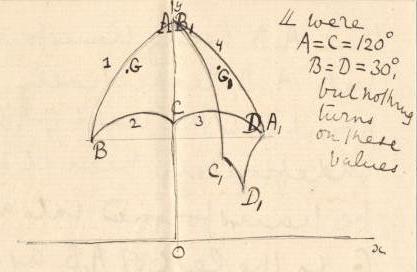 y
A B₁
∠s were
A=C=120°
B=D=30°,
but nothing
turns
on these
values.
1
G
4
G₁
B
2
C
3
D A₁
C₁
D₁
O
x